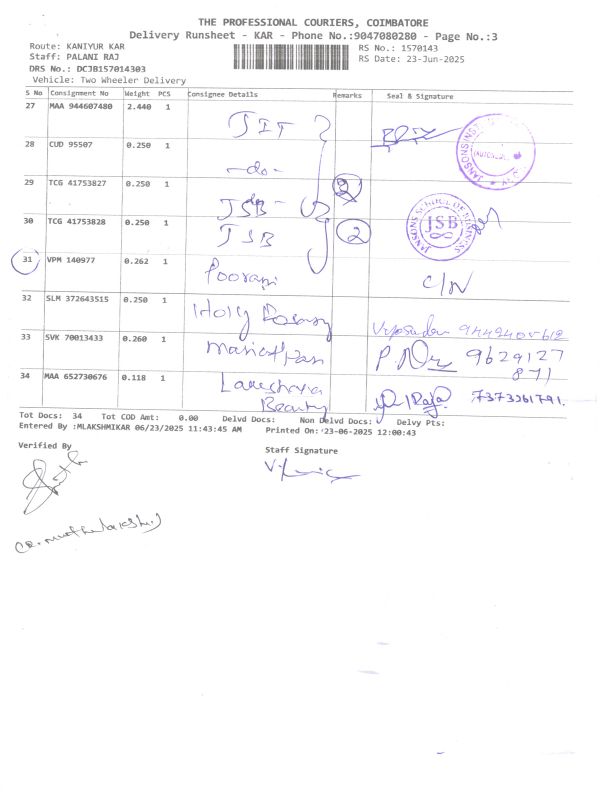 THE PROFESSIONAL COURIERS, COIMBATORE
Delivery Runsheet - KAR - Phone No.:9047080280 - Page No.:3
Route: KANIYUR KAR
RS No.: 1570143
Staff: PALANI RAJ
RS Date: 23-Jun-2025
DRS No.: DCJB157014303
Vehicle: Two Wheeler Delivery
S No Consignment No Weight PCS Consignee Details Remarks Seal & Signature
27 MAA 944607480 2.440 1 JIT
28 CUD 95507 0.250 1 -do-
29 TCG 41753827 0.250 1 JSB -do- 2
30 TCG 41753828 0.250 1 JSB 2
JANSONS SCHOOL OF BUSINESS
JSB
31 VPM 140977 0.262 1 Poorani C/N
32 SLM 372643515 0.250 1 Holy Rosary
33 SVK 70013433 0.260 1 9629127
871
34 MAA 652730676 0.118 1 7373361791.
Beauty
Tot Docs: 34 Tot COD Amt: 0.00 Delvd Docs: Non Delvd Docs: Delvy Pts:
Entered By :MLAKSHMIKAR 06/23/2025 11:43:45 AM Printed On: 23-06-2025 12:00:43
Verified By
Staff Signature